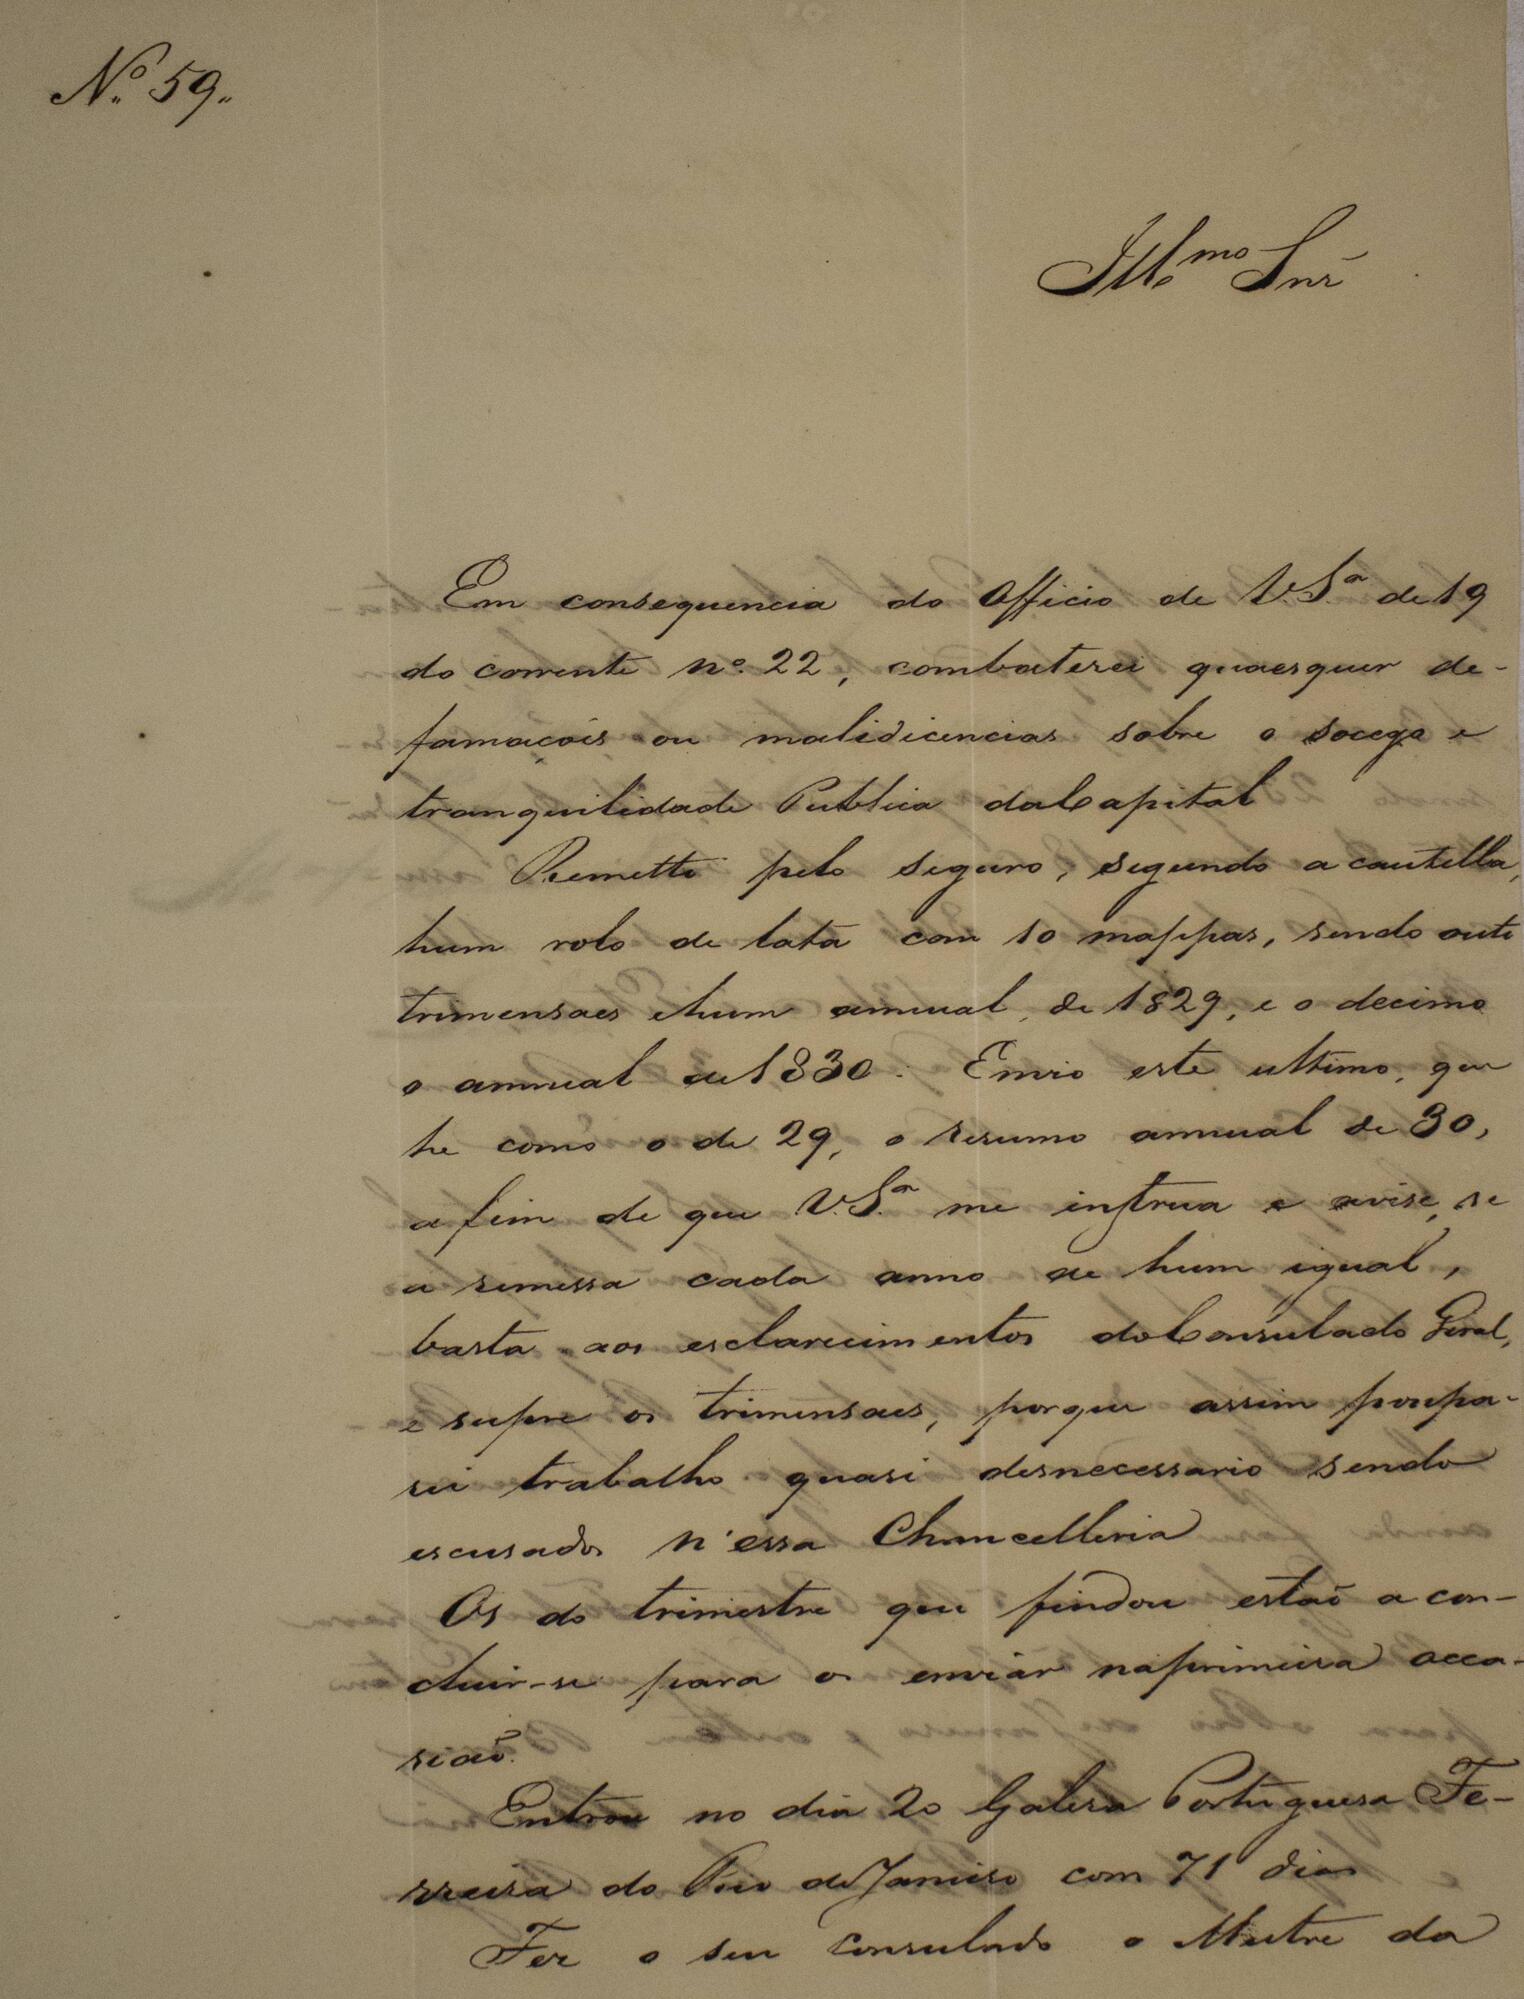 Nº 59.
Illmo Snr
Em consequencia do Officio de V.Sª de 19
do corrente nº 22, combaterei quaesquer de-
famaçois ou malidicencias sobre o socego e
tranquilidade Publica da Capital
Remetti pelo seguro, segundo a cautella,
hum rolo de lata com 10 mappas, sendo outo
trimensaes e hum annual, de 1829, e o decimo
o annual de 1830. Envio este ultimo, que
he como o de 29, o resumo annual de 30,
a fim de que V.Sª me instrua e avise, se
a remessa cada anno de hum igual,
basta aos esclarecimentos do Consulado Geral,
e supre os trimensaes, porque assim poupa-
rei trabalho quasi desnecessario sendo
escusados n'essa Chancelleria
Os do trimestre que findou estaõ a con-
cluir-se para os enviar na primeira occa-
siaõ.
Entrou no dia 20 Galera Portuguesa Fe-
rreira do Rio de Janeiro com 71 dias
Fez o seu consulado o Mestre da